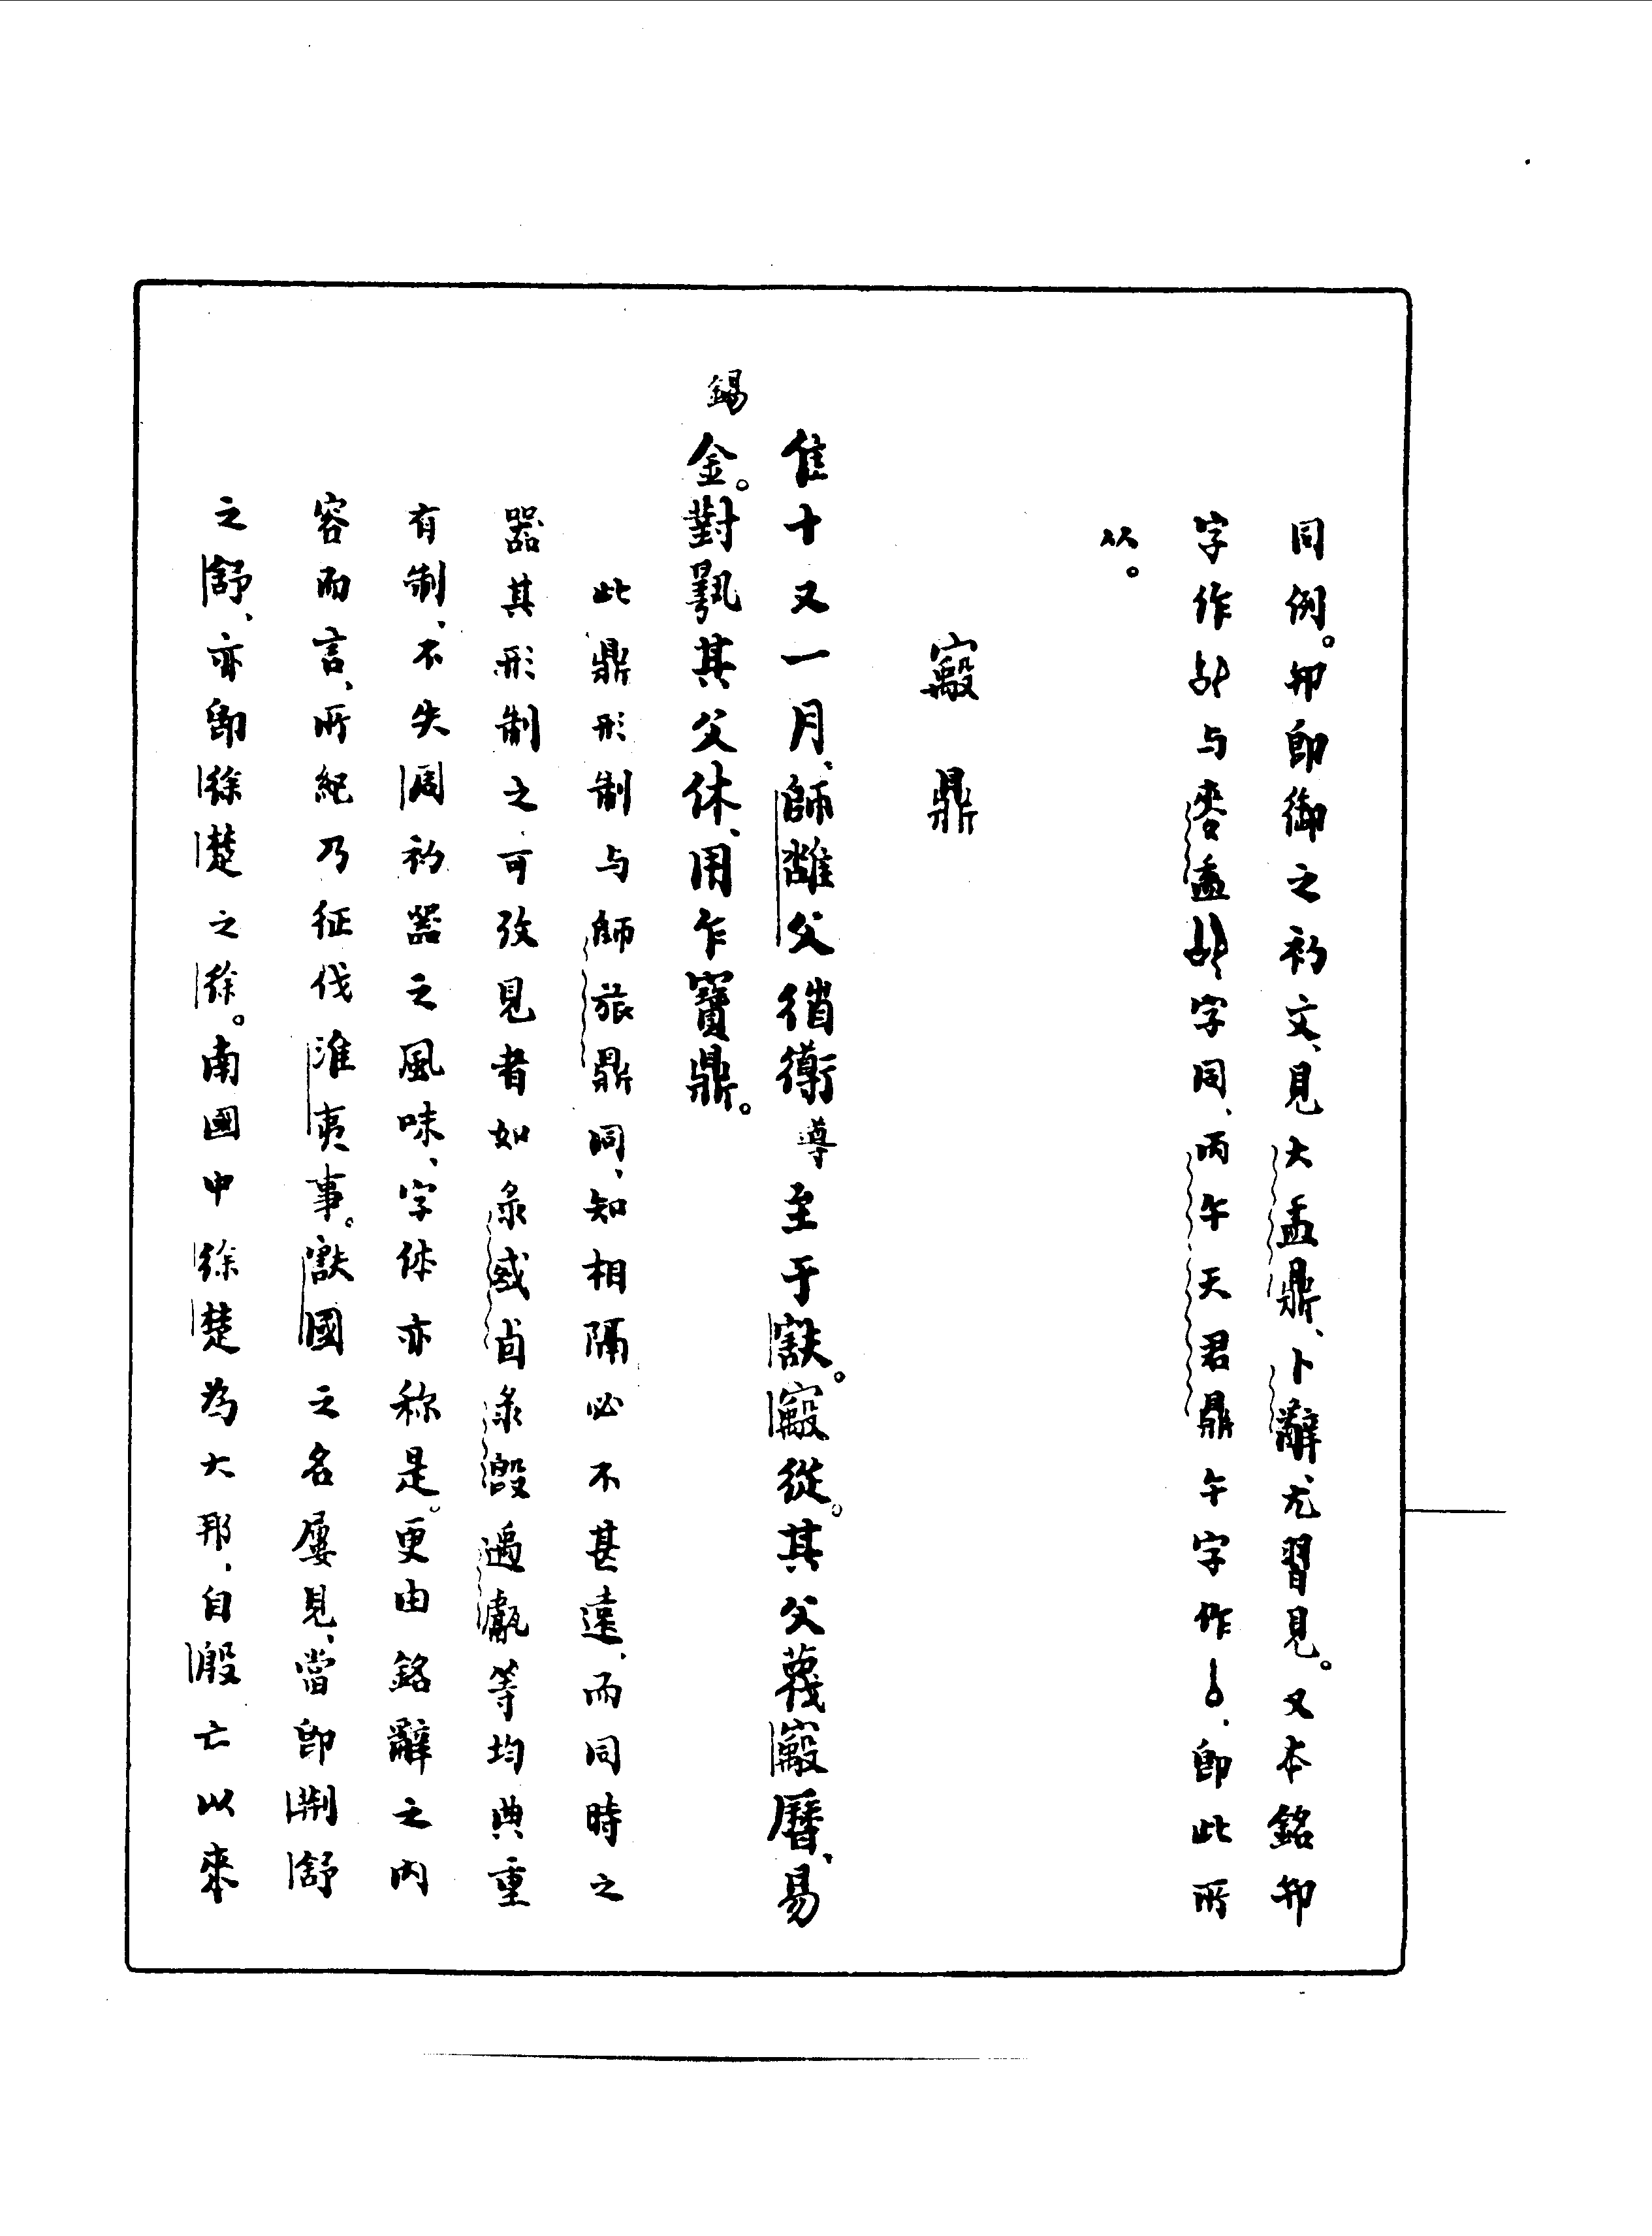 同例。卸即御之初文、見大盂鼎、卜辭尤習見。又本銘卸
字作与麥盉字同、丙午天君鼎午字作、即此所
从。
鼎
隹十又一月、師雝父𢓊衟導至于㝬。從。其父蔑曆、易
錫金。對揚其父休、用乍寶鼎。
此鼎形制与師旅鼎同、知相隔必不甚遠、而同時之
器其形制之可攷見者如彔卣彔𣪘遇甗等均典重
有制、不失周初器之風味、字体亦称是。更由銘辭之内
容而言、所紀乃征伐淮夷事。㝬國之名屢見、當即荆舒
之舒、亦即徐楚之徐。南國中徐楚為大邦、自殷亡以來